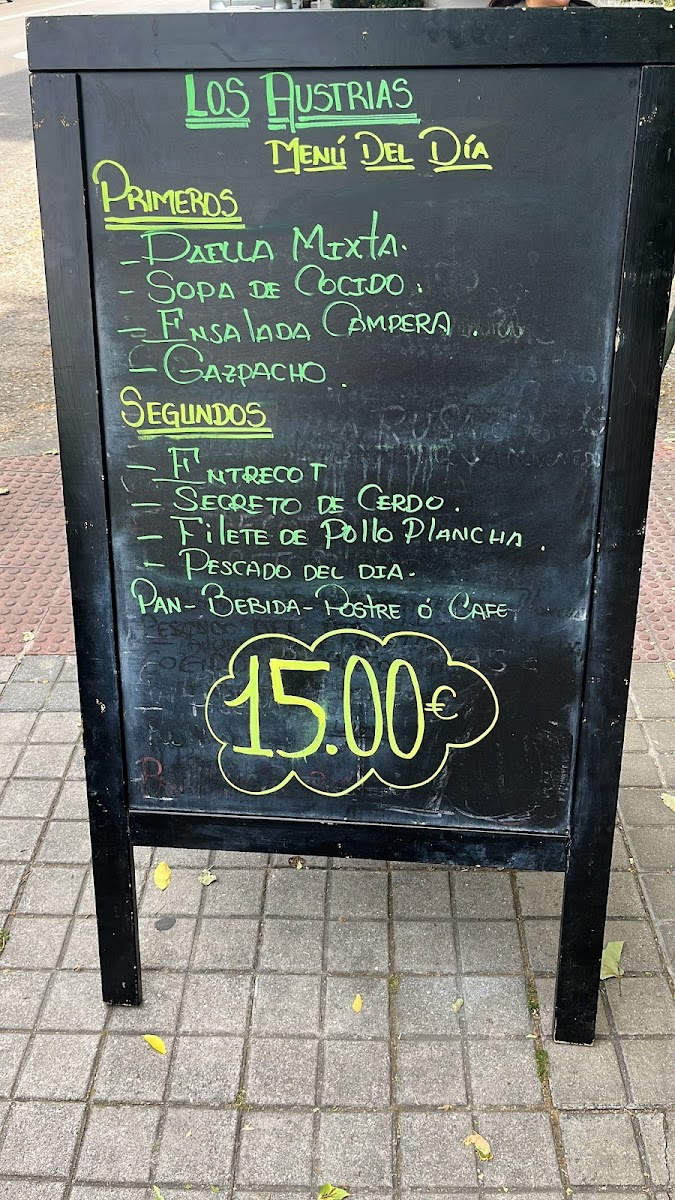 Los Austrias
Menú Del Día
Primeros
- Paella Mixta.
- Sopa de Cocido.
- Ensalada Campera.
- Gazpacho.
Segundos
- Entrecot
- Secreto de Cerdo.
- Filete de Pollo Plancha.
- Pescado del dia.
Pan - Bebida - Postre ó Cafe
15.00€